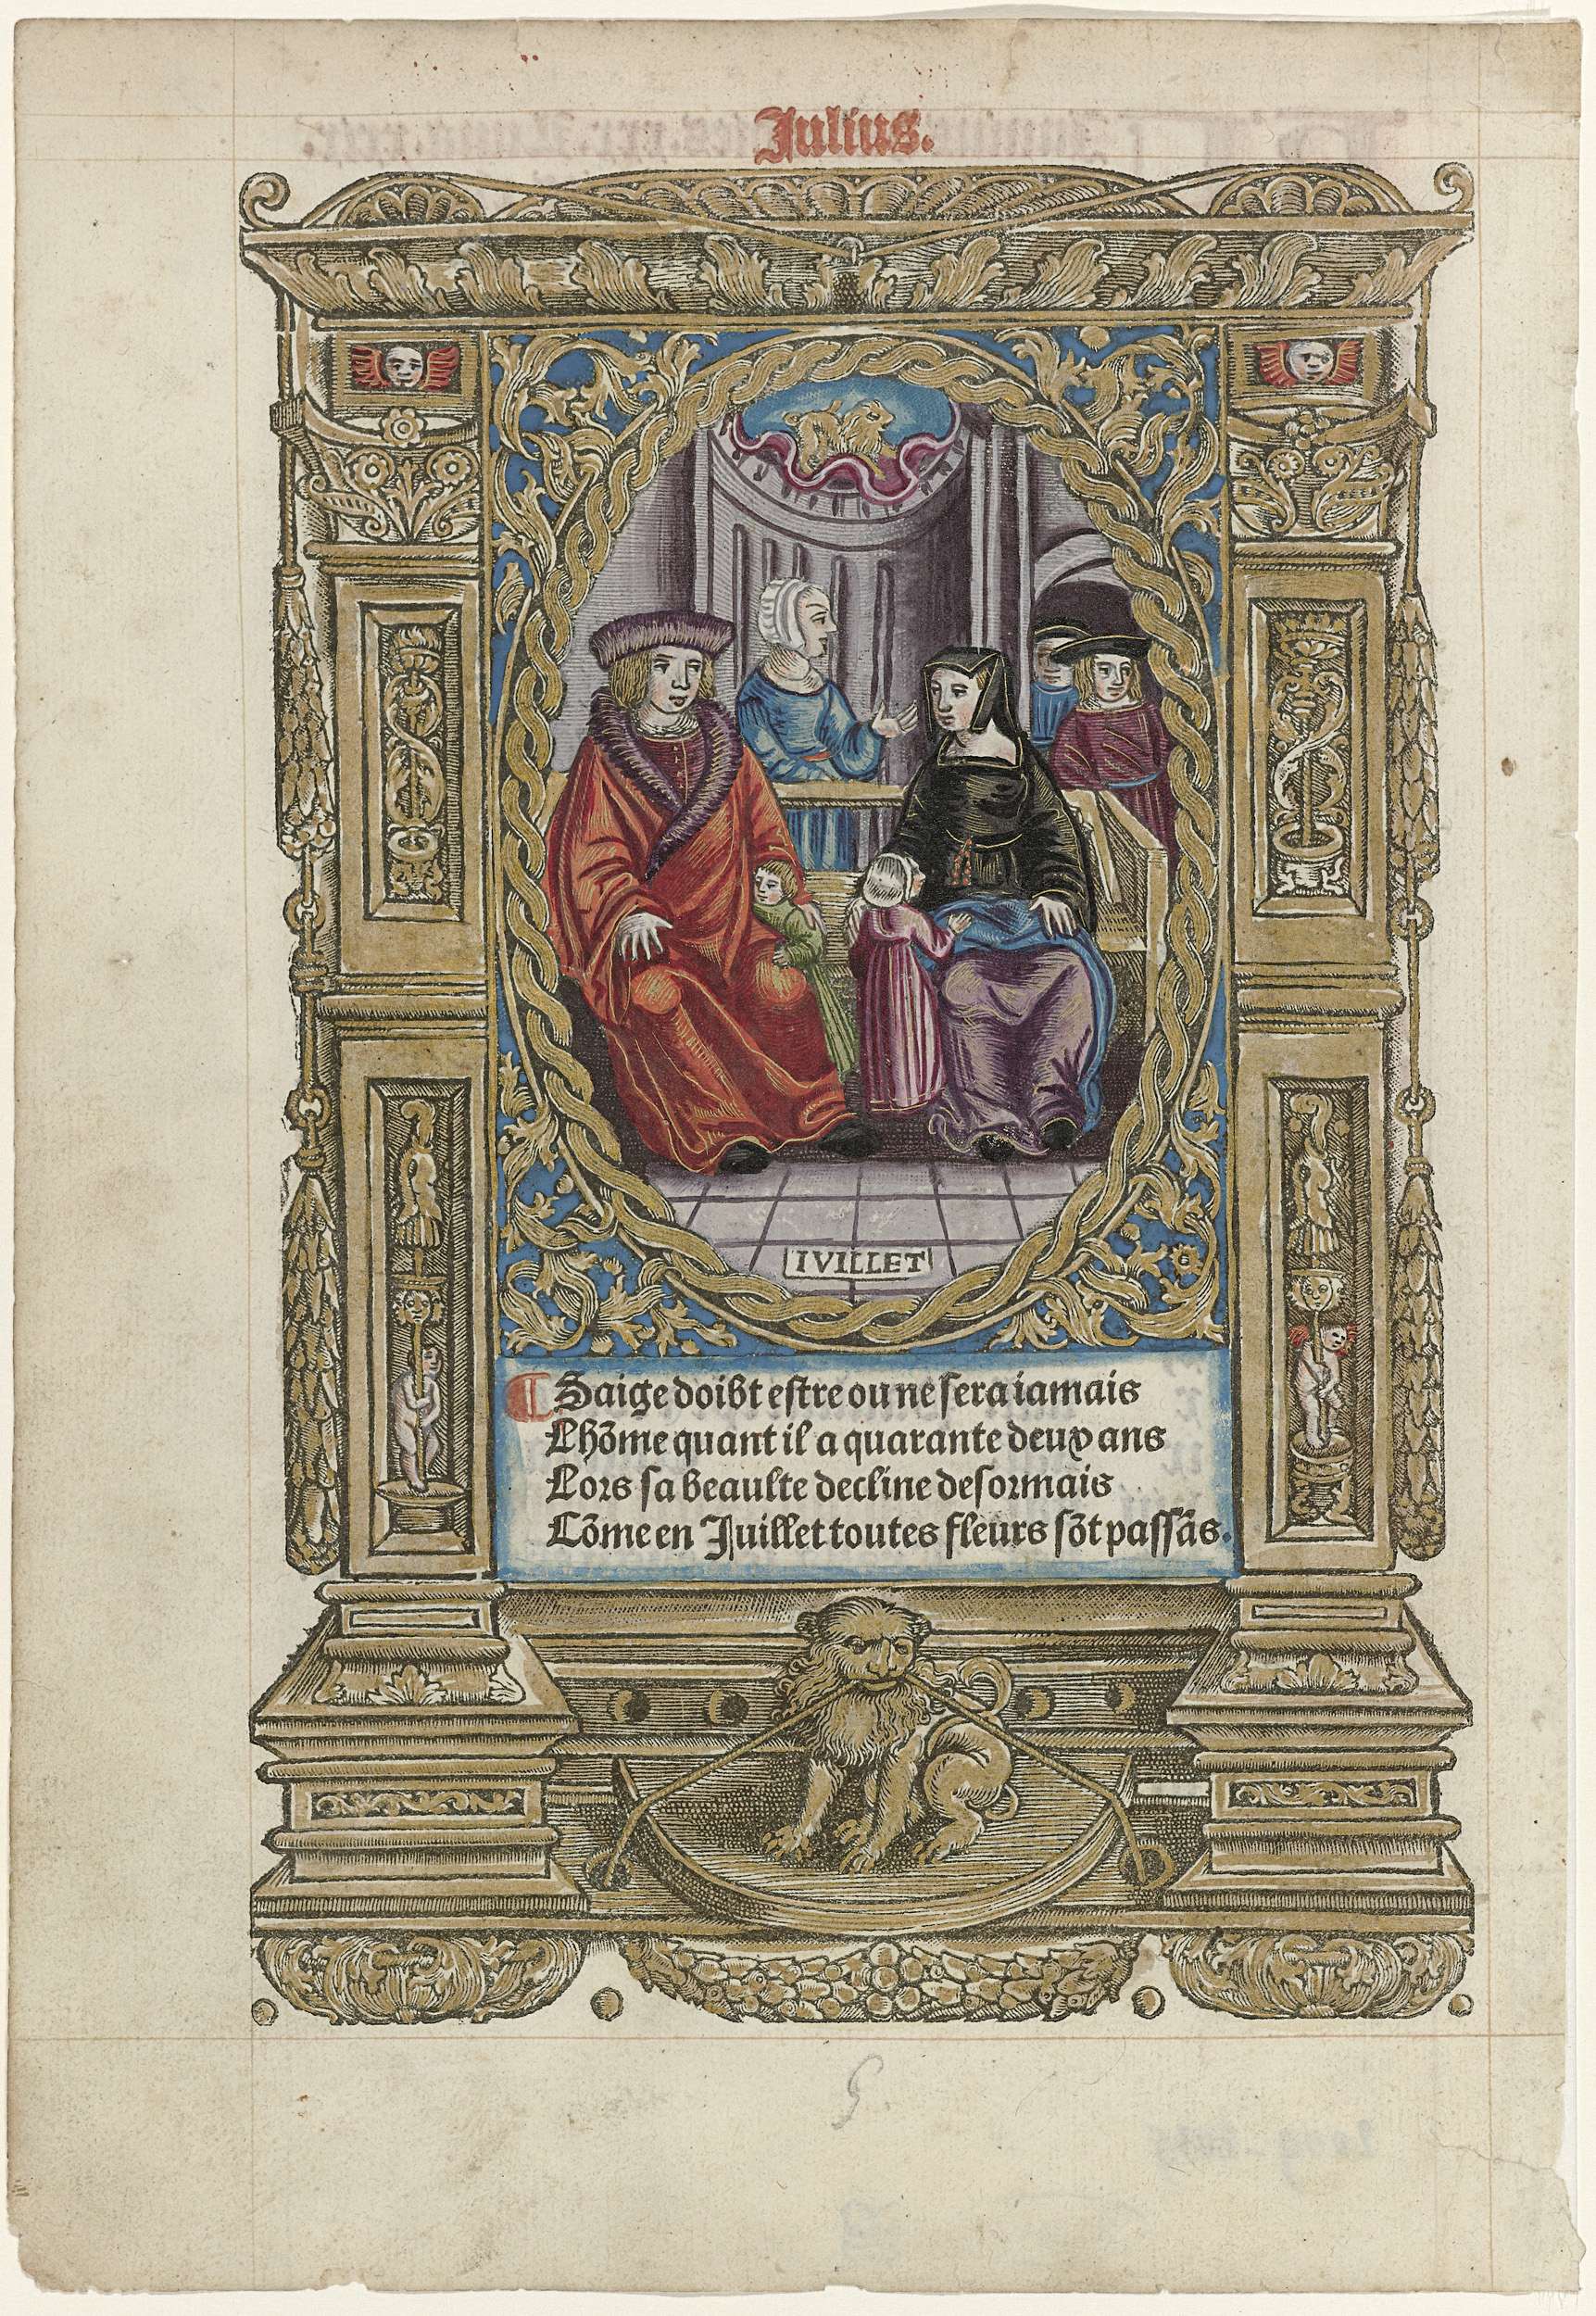 Julius.
IVILLET
Saige doibt estre ou ne sera iamais
Lhõme quant il a quarante deux ans
Lors sa beaulte decline desormais
Cõme en Juillet toutes fleurs sõt passãs.